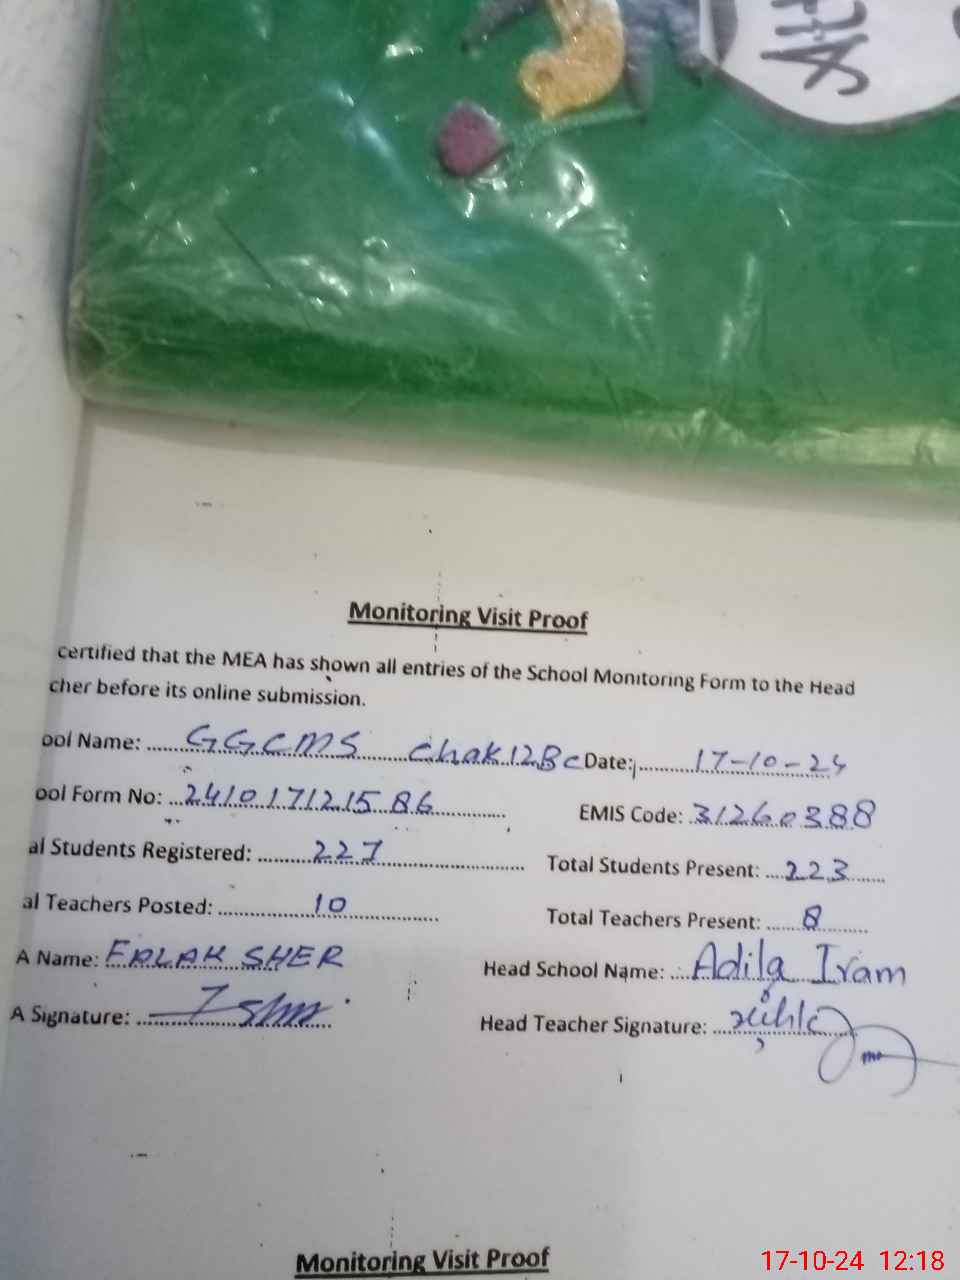 Monitoring Visit Proof
certified that the MEA has shown all entries of the School Monitoring Form to the Head
cher before its online submission.
ool Name: GGCMS Chak 12Bc Date: 17-10-24
ool Form No: 241017121586 EMIS Code: 31260388
al Students Registered: 227 Total Students Present: 223
al Teachers Posted: 10 Total Teachers Present: 8
A Name: FALAK SHER Head School Name: Adila Iram
A Signature: Head Teacher Signature:
Monitoring Visit Proof
17-10-24 12:18